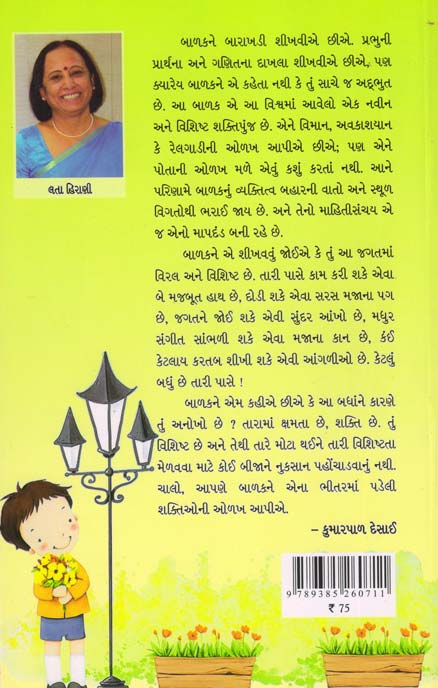 બાળકને બારાખડી શીખવીએ છીએ. પ્રભુની
પ્રાર્થના અને ગણિતના દાખલા શીખવીએ છીએ, પણ
ક્યારેય બાળકને એ કહેતા નથી કે તું સાચે જ અદ્ભુત
છે. આ બાળક એ આ વિશ્વમાં આવેલો એક નવીન
અને વિશિષ્ટ શક્તિપુંજ છે. એને વિમાન, અવકાશયાન
કે રેલગાડીની ઓળખ આપીએ છીએ; પણ એને
પોતાની ઓળખ મળે એવું કશું કરતાં નથી. આને
પરિણામે બાળકનું વ્યક્તિત્વ બહારની વાતો અને સ્થૂળ
વિગતોથી ભરાઈ જાય છે. અને તેનો માહિતીસંચય એ
જ એનો માપદંડ બની રહે છે.
લતા હિરાણી
બાળકને એ શીખવવું જોઈએ કે તું આ જગતમાં
વિરલ અને વિશિષ્ટ છે. તારી પાસે કામ કરી શકે એવા
બે મજબૂત હાથ છે, દોડી શકે એવા સરસ મજાના પગ
છે, જગતને જોઈ શકે એવી સુંદર આંખો છે, મધુર
સંગીત સાંભળી શકે એવા મજાના કાન છે, કંઈ
કેટલાય કરતબ શીખી શકે એવી આંગળીઓ છે. કેટલું
બધું છે તારી પાસે !
બાળકને એમ કહીએ છીએ કે આ બધાંને કારણે
તું અનોખો છે ? તારામાં ક્ષમતા છે, શક્તિ છે. તું
વિશિષ્ટ છે અને તેથી તારે મોટા થઈને તારી વિશિષ્ટતા
મેળવવા માટે કોઈ બીજાને નુકસાન પહોંચાડવાનું નથી.
ચાલો, આપણે બાળકને એના ભીતરમાં પડેલી
શક્તિઓની ઓળખ આપીએ.
– કુમારપાળ દેસાઈ
9 789385 260711
₹ 75